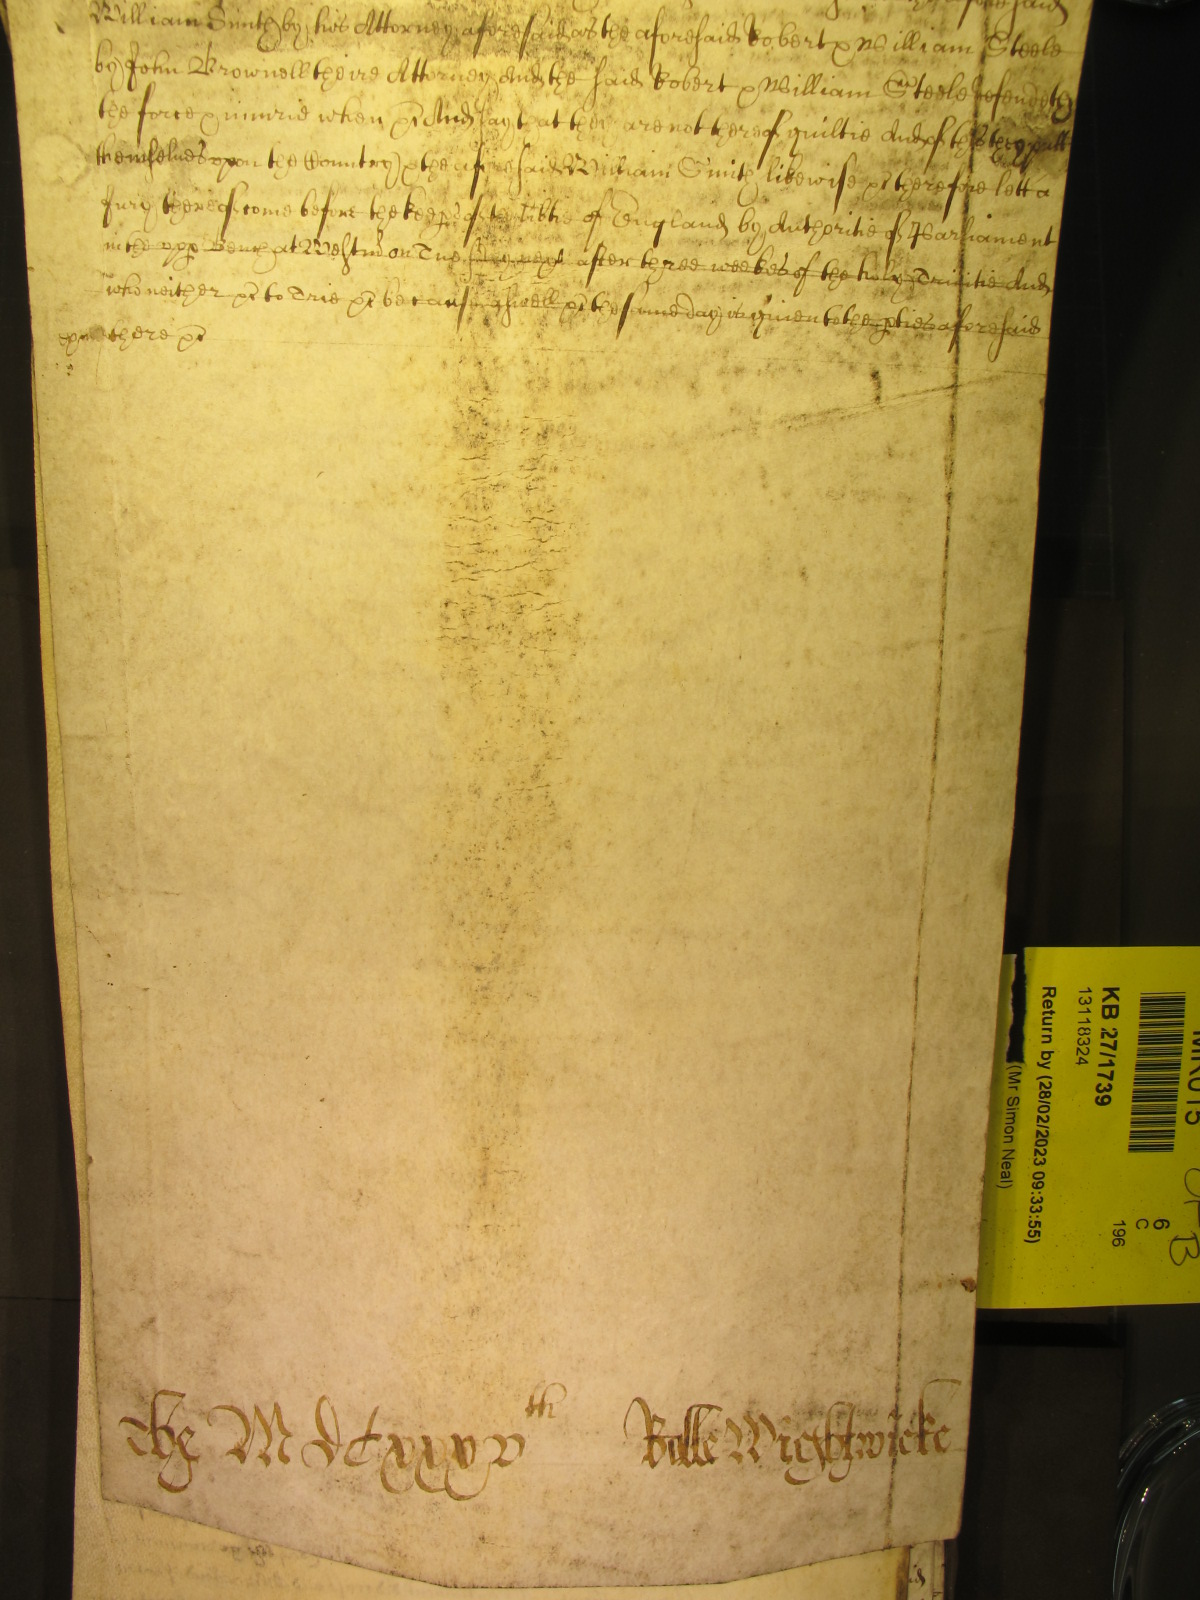 aforesaid
William Smith by his Attorney aforesaid as the aforesaid Robert & William Steele
by John Brownell theire Attorney And the said Robert & William Steele defendeth
the force & iniurie when &c And say that they are not thereof guiltie And of this they putt
themselues vpon the Country & the aforesaid William Smith likewise &c therefore lett a
Jury thereof come before the keeps of the libtie of England by Authoritie of Parliament
in the vpp Bench at Westm on Tuesday next after three weekes of the holy Trinitie And
who neither &c to Trie &c because aswell &c the same day is giuen to the pties aforesaid
there &c
The M DCxxxv th Rolle Wightwicke
KB 27/1739
13118324
Return by (28/02/2023 09:33:55)
(Mr Simon Neal)
6
C
196
B